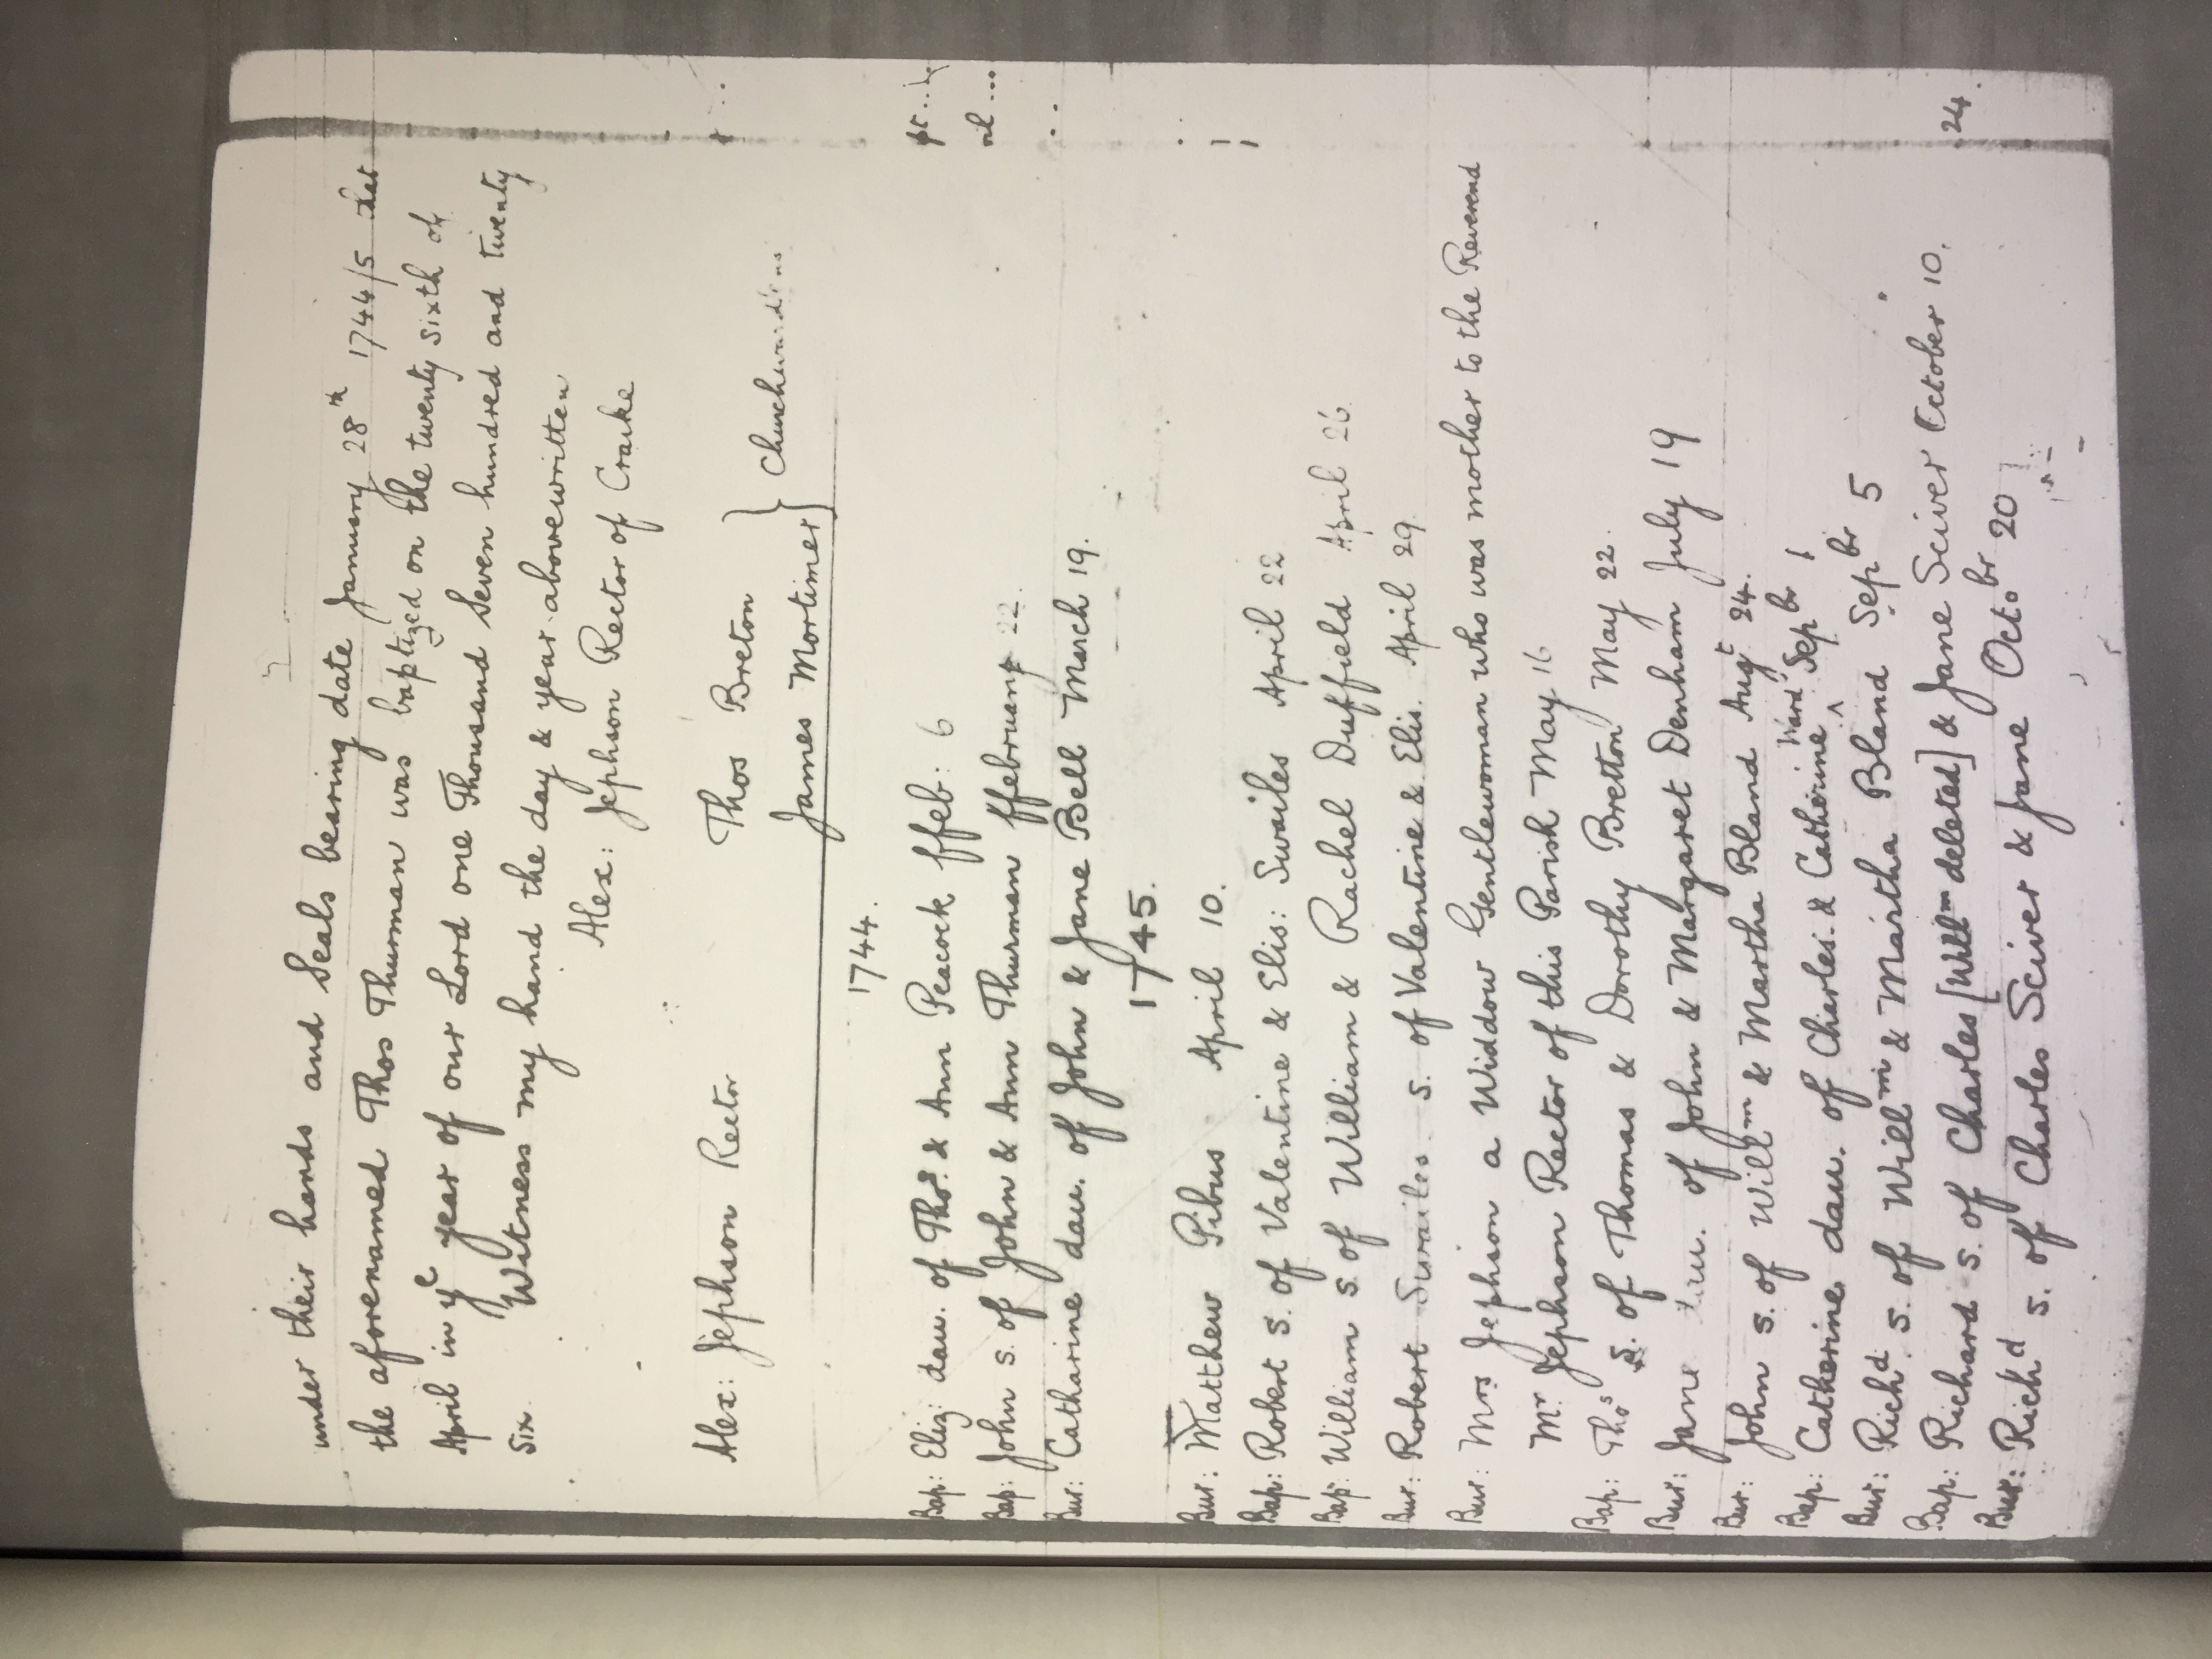 under their hands and Seals bearing date January 28th 1744/5 that
the aforenamed Thos Thurman was baptized on the twenty sixth of
April in ye year of our Lord one Thousand Seven hundred and twenty
Six. Witness my hand the day & year abovewritten
Alex: Jephson Rector of Crake
Alex: Jephson Rector Thos Breton
James Mortimer } Churchwardens
1744.
Bap: Eliz: dau. of Thos. & Ann Peacock ffeb: 6
Bap: John s. of John & Ann Thurman ffebruary 22.
Bur: Catharine dau. of John & Jane Bell March 19.
1745.
Bur: Matthew Pibus April 10.
Bap: Robert s. of Valentine & Elis: Swailes April 22
Bap: William s. of William & Rachel Duffield April 26
Bur: Robert Swailes s. of Valentine & Elis. April 29.
Bur: Mrs Jephson a Widdow Gentlewoman who was mother to the Reverend
Mr Jephson Rector of this Parish May 16
Bap: Thos S. of Thomas & Dorothy Bretton May 22
Bur: Jane dau. of John & Margaret Denham July 19
Bur: John s. of Willm & Martha Bland Augt 24.
Bap: Catherine dau. of Charles. & Catherine ^ Ward Sepbr 1
Bur: Richd s. of Willm & Martha Bland Sepbr 5
Bap: Richard s. of Charles [Willm deleted] & Jane Sciver October 10.
Bur: Richd s. of Charles Sciver & Jane Octobr 20
24.